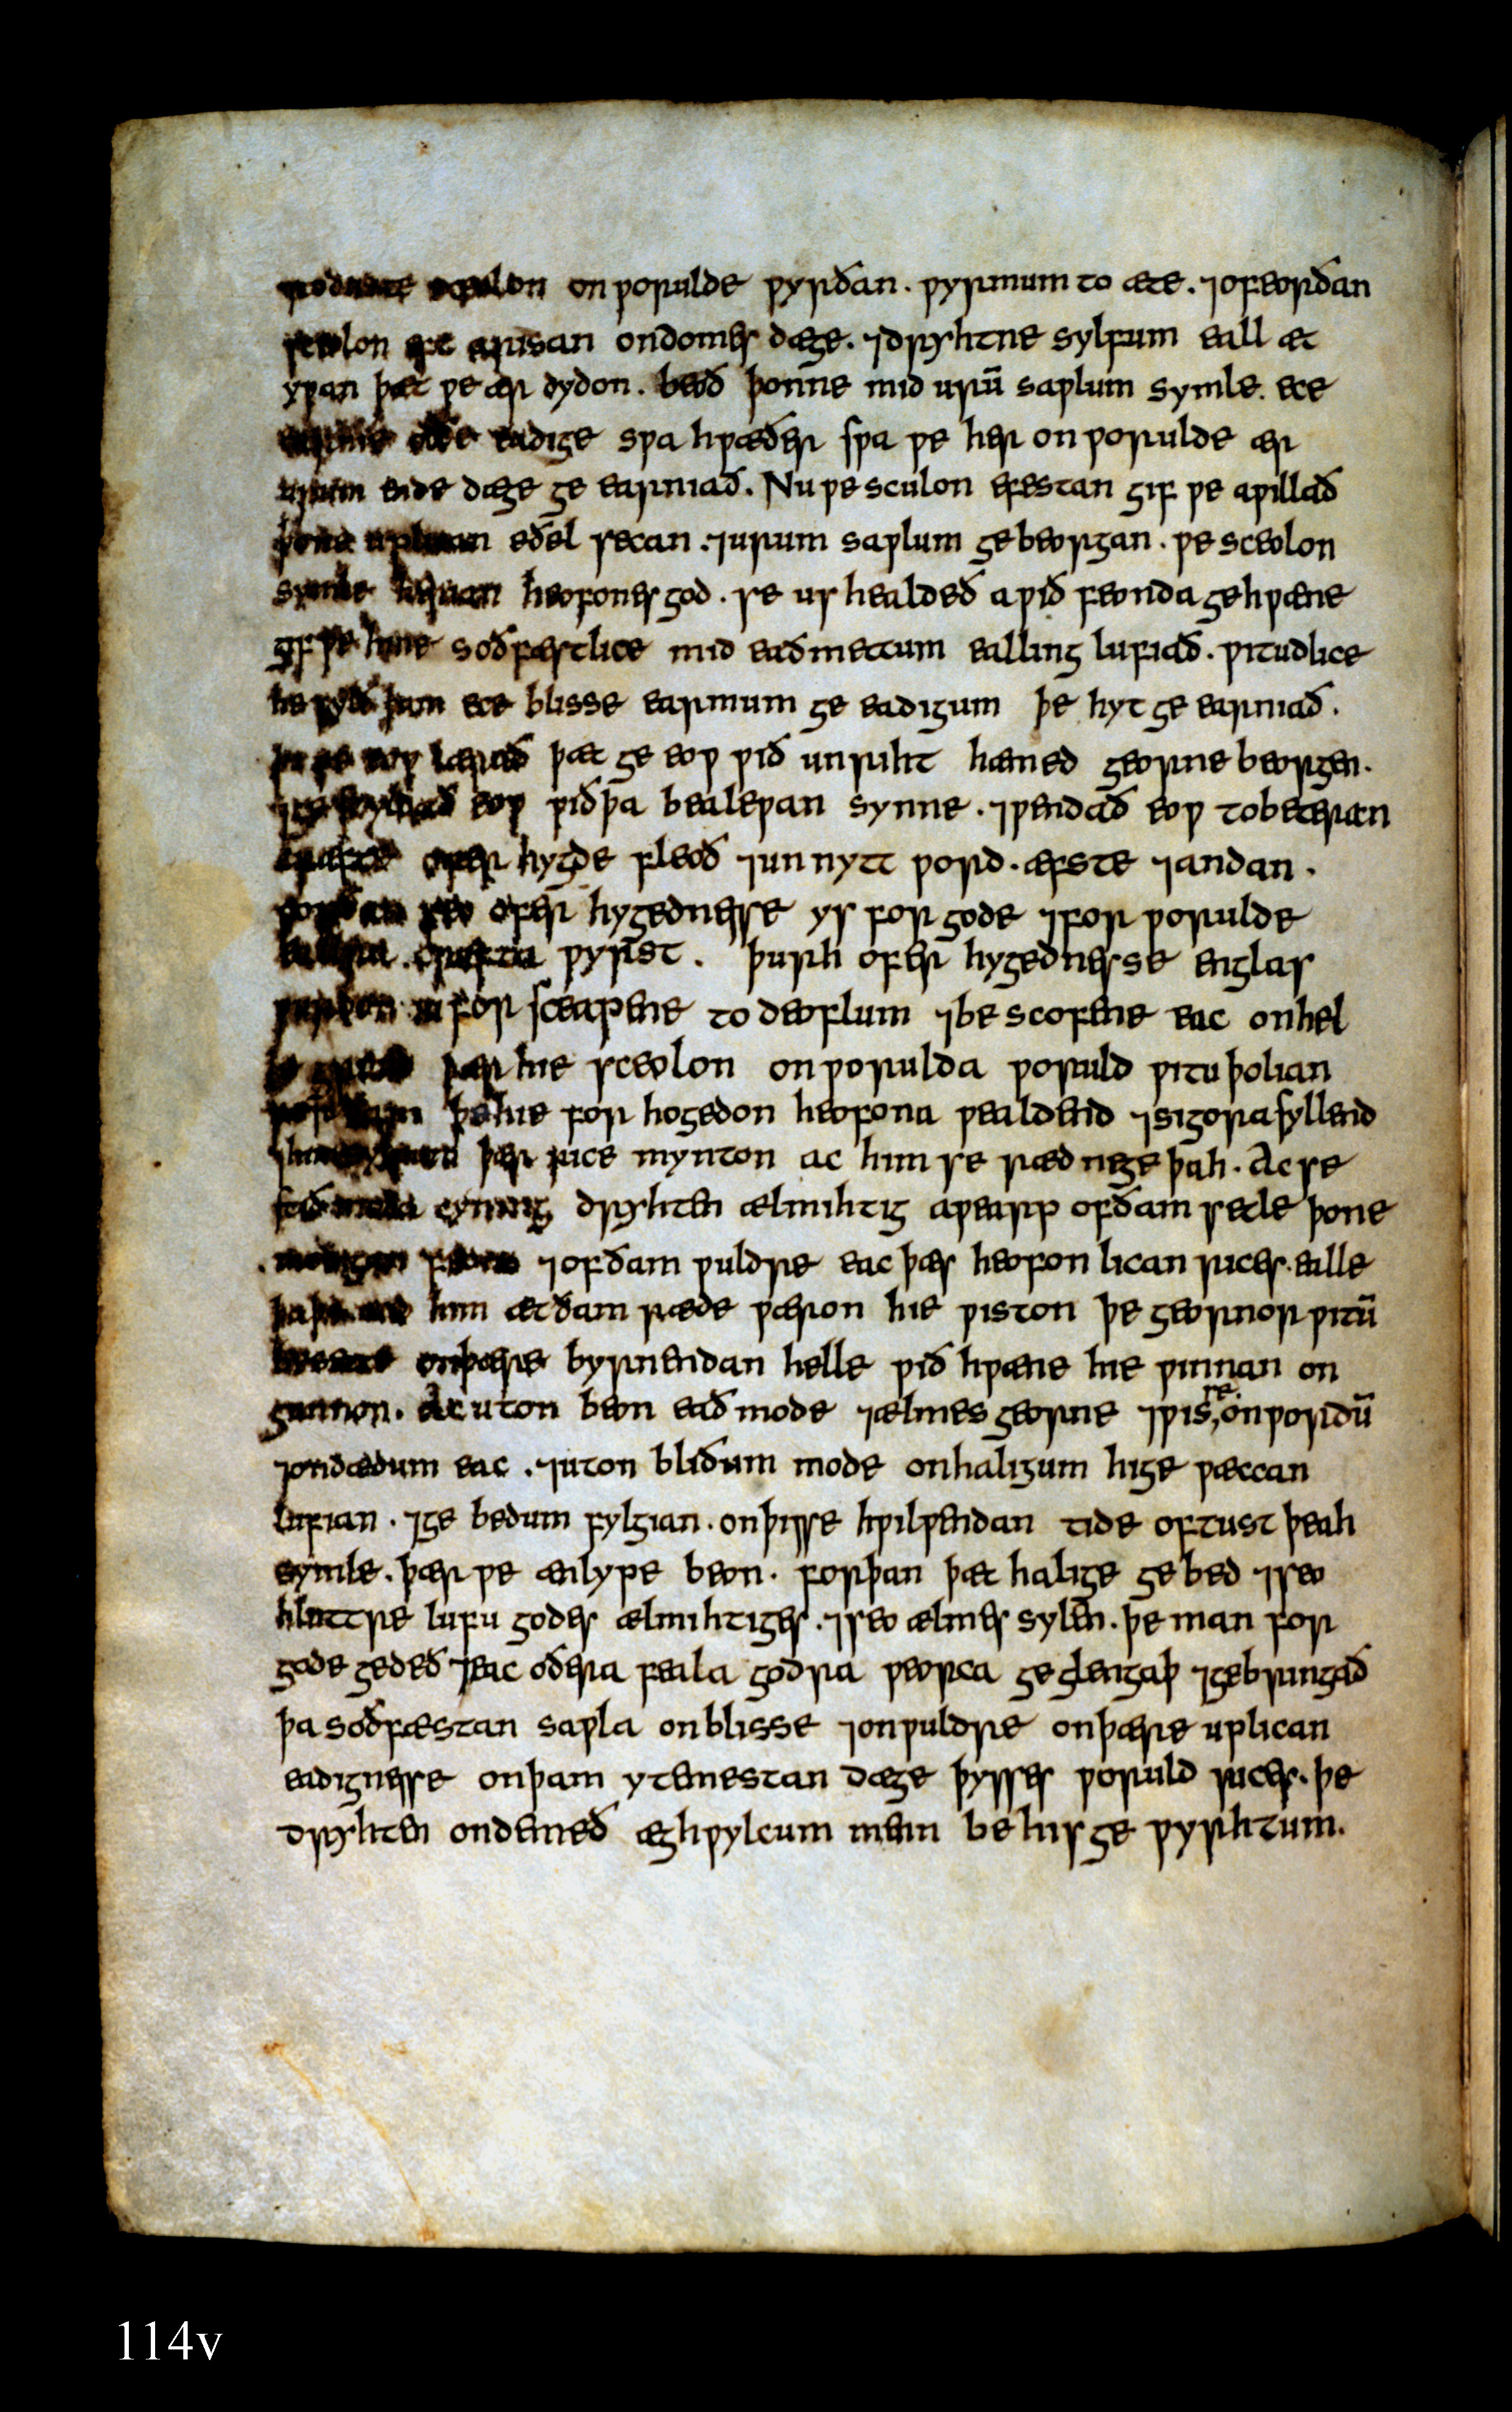 on ƿorulde ƿyrðan . ƿyrmum to æte . ⁊ of eorðan
sceolon arisan on domes dæge . ⁊ dryhtne sylfum eall æt
yƿan þæt ƿe ær dydon . beoð þonne mid urū saƿlum symle . ece
eadige sƿa hƿæðer sƿa ƿe her on ƿorulde ær
ende dæge ge earniað . Nu ƿe sculon efestan gif ƿe a ƿillað
þone uplican eðel secan . ⁊ urum saƿlum ge beorgan . ƿe sceolon
symle heofones god . se us healdeð a ƿið feonda gehƿæne
gif ƿe hine soðfæstlice mid eaðmettum ealling lufiað . ƿitudlice
he ece blisse earmum ge eadigum þe hyt ge earniað .
eoƿ læreð þæt ge eoƿ ƿið unriht hæmed georne beorgen .
eoƿ ƿið þa bealeƿan synne . ⁊ ƿendað eoƿ to beteran
cræfte ofer hygde fleoð ⁊ un nytt ƿord . æfste ⁊ andan .
forðan seo ofer hygednesse ys for gode ⁊ for ƿorulde
ealra cræfta ƿyrst . þurh ofer hygednesse englas
for sceapene to deoflum ⁊ be scofene eac on hel
þær hie sceolon on ƿorulda ƿoruld ƿitu þolian
þe hie for hogedon heofona ƿaldend ⁊ sigora syllend
þær rice mynton ac him se ræd ne ge þah . Ac se
cyning dryhten ælmihtig aƿearp of ðam setle þone
modigan feond ⁊ of ðam ƿuldre eac þæs heofon lican rices . ealle
him æt ðam ræde ƿæron hie ƿiston þe geornor ƿitū
on þære byrnendan helle ƿið hƿæne hie ƿinnan on
gunnon . Ac uton beon eað mode ⁊ ælmes georne ⁊ ƿis re on ƿordū
⁊ on dædum eac . ⁊ uton bliðum mode on haligum hige ƿæccan
lufian . ⁊ ge bedum fylgian . on þisse hƿilƿendan tide oftust þeah
symle . þær ƿe ænlyƿe beon . forþan þæt halige ge bed ⁊ seo
hluttre lufu godes ælmihtiges . ⁊ seo ælmes sylen . þe man for
gode gedeð ⁊ eac oðera feala godra ƿeorca ge glengaþ ⁊ gebringað
þa soðfæstan saƿla on blisse ⁊ on ƿuldre on þære uplican
eadignesse on þam ytemestan dæge þysses ƿoruld rices . þe
dryhten on demeð æghƿylcum men be his ge ƿyrhtum .
114v